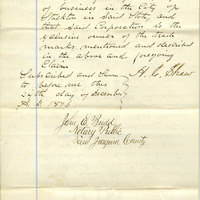 of business in the City of
Stockton in said State, and
that said Corporation is the
exclusive owner of the trade
marks mentioned and described
in the above and foregoing
Claim
Subscribed and Sworn H. C. Shaw
to before me this
24th day of December
A.D. 18
John C. Budd
Notary Public
San Joaquin County